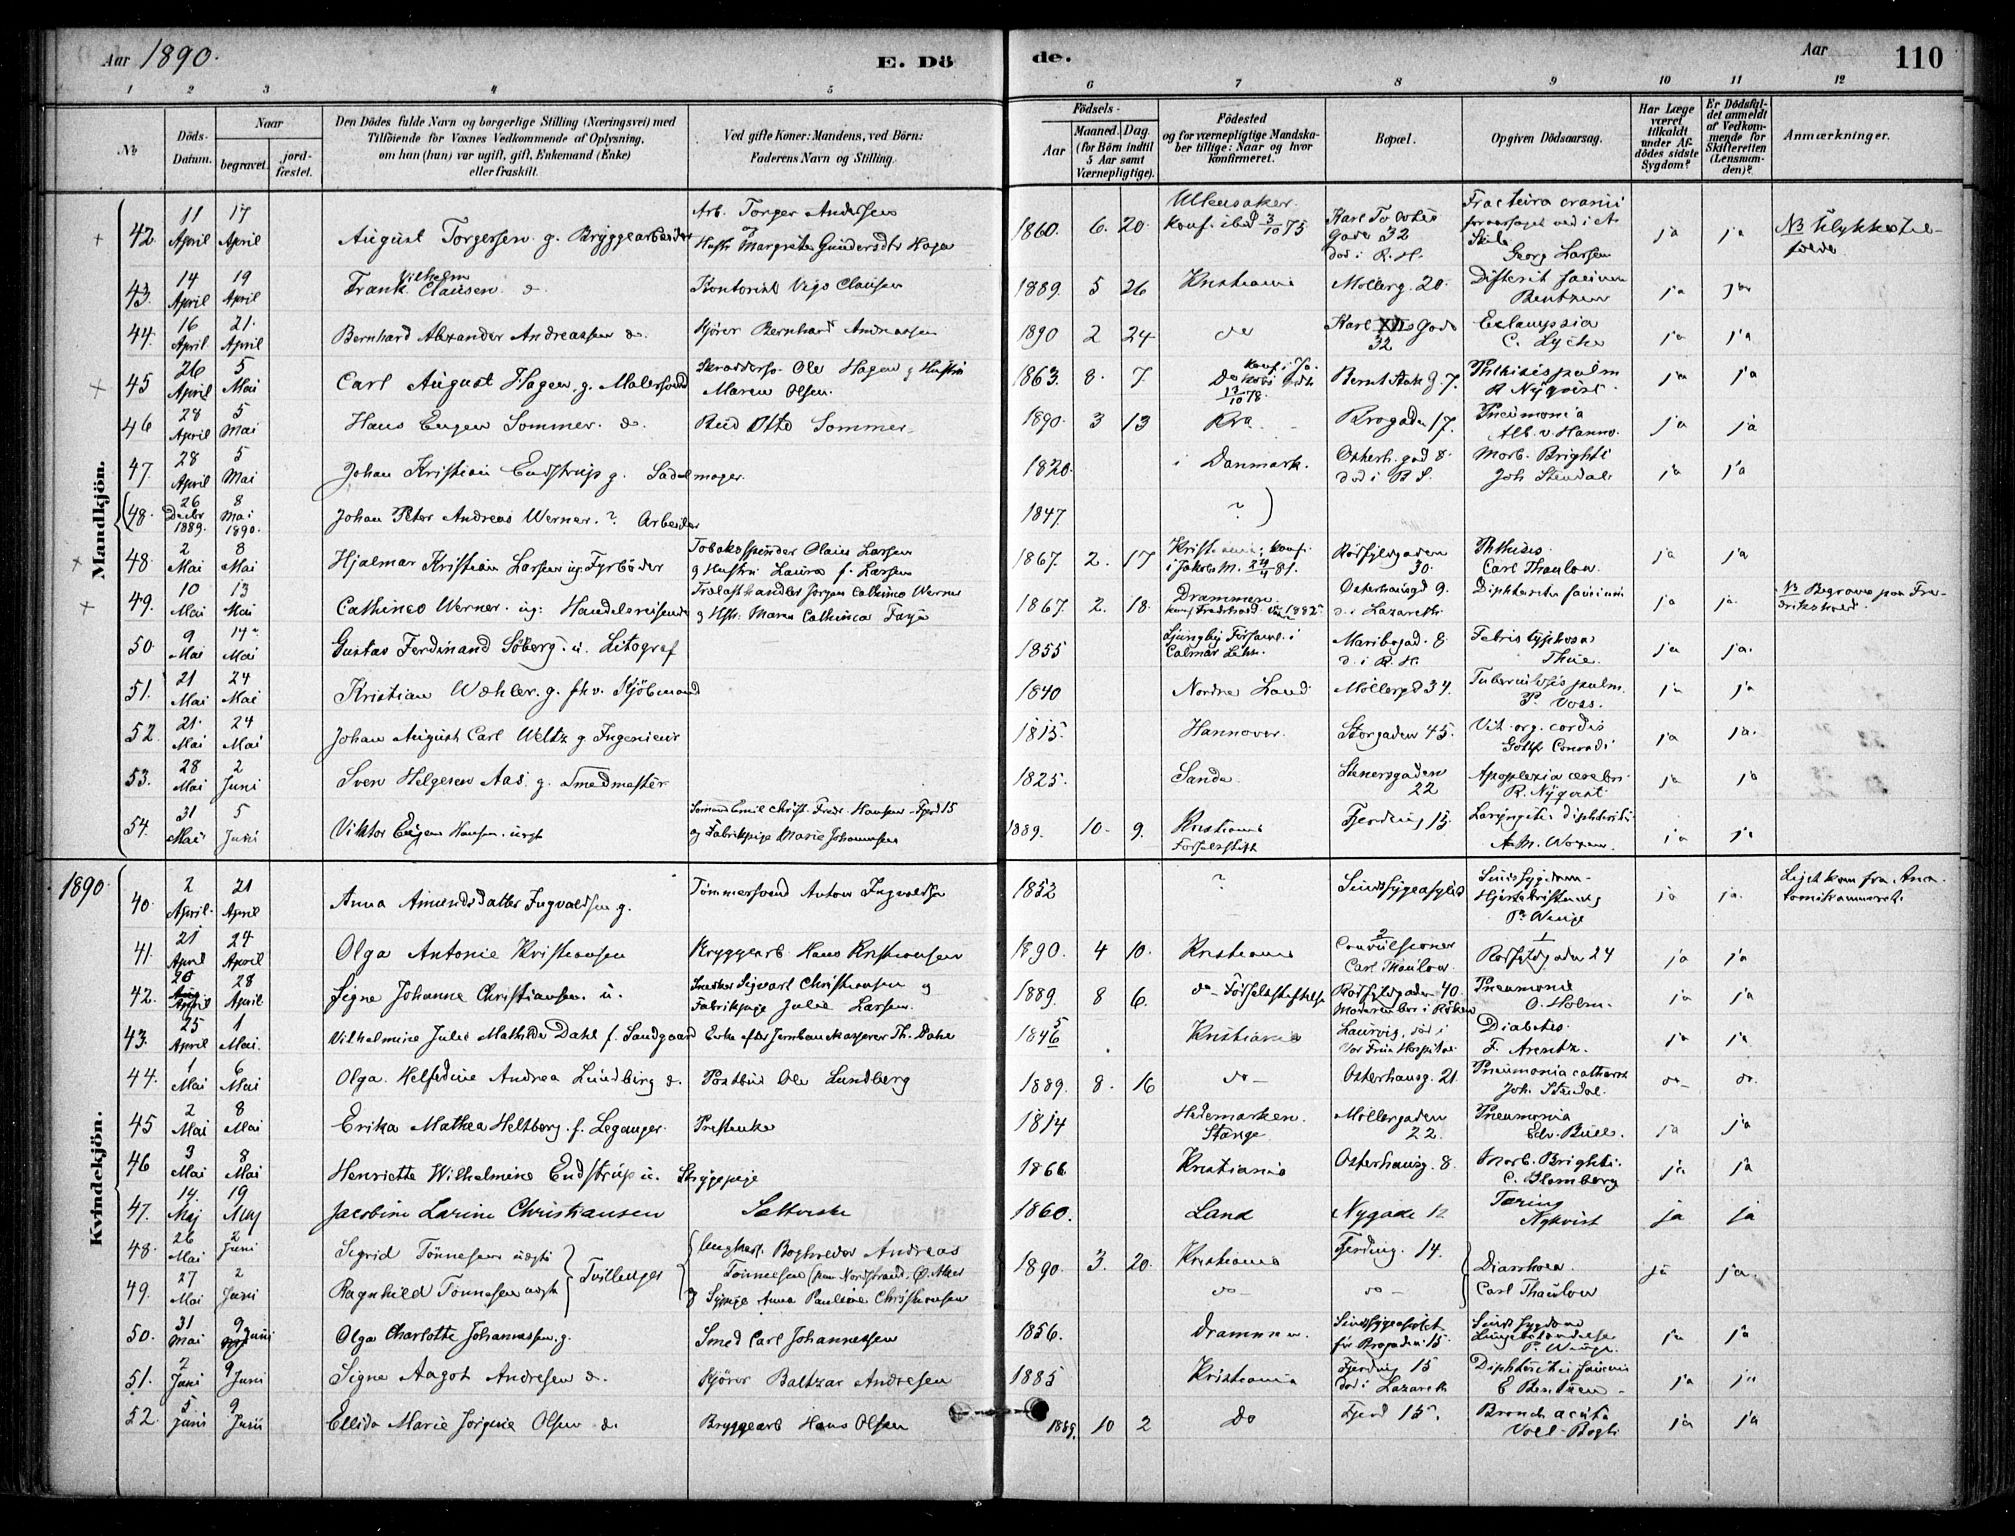 Aar 1890.
E. Dö
de.
Aar
110
1 2 3 4 5 6 7 8 9 10 11 12
No
Döds-Datum.
Naar
begravet.
jordfæstet.
Den Dödes fulde Navn og borgerlige Stilling (Næringsvei) med
Tilföiende for Voxnes Vedkommende af Oplysning,
om han (hun) var ugift, gift, Enkemand (Enke)
eller fraskilt.
Ved gifte Koner: Mandens, ved Börn:
Faderens Navn og Stilling.
Födsels-
Aar
Maaned. Dag.
(for Börn indtil
5 Aar samt
Værnepligtige).
Födested
og for værnepligtige Mandska-
ber tillige: Naar og hvor
konfirmeret.
Bopæl.
Opgiven Dödsaarsag.
Har Læge
været
tilkaldt
under Af-
dödes sidste
Sygdom?
Er Dödsfal-
det anmeldt
af Vedkom-
mende for
Skifteretten
(Lensman-
den)?
Anmærkninger.
Mandkjön.
42. 11 April 17 April August Torgersen g. Bryggearbeider Arb. Torger Andersen og Hustr Margrete Gundersdtr 1860. 6. 20. Ullensaker. Konf. ibd 3/10 75 Gade 32 död i R. H. Georg Larsen ja ja
43. 14 April 19 April Frank Vilhelm Clausen d. Kontorist Vigo Clausen 1889. 5 26 Kristiania Möllerg. 20. Bentzen ja ja
44. 16 April 21. April Bernhard Alexander Andreassen d. Kjörer Bernhard Andreassen 1890 2 24 do Karl XIIs Gade 32 Eclampsia C. Lyche ja ja
45 26 April 5 Mai Carl August Hagen g. Malersvend Ole Hagen g Hustru Maren Olsen. 1863. 8. 7. 13/10 78. 7. Phthisis pulm R. Nyqvist. ja ja
46 28 April 5 Mai Hans Eugen Sommer. d. Bud Otto Sommer 1890. 3 13 Kra Brogaden 17. Pneumonia Alb. v. Hanno. ja ja
47. 28 April 5 Mai Johan Kristian Endstrup g. Sadelmager. 1820. i Danmark. Osterh. gad 8. Morb. Brighti Joh Stendal ja ja
(48. 26 Decbr 1889. 8 Mai 1890. Johan Peter Andreas Werner. ? Arbeider 1847. ? )
48. 2 Mai 8 Mai Hjalmar Kristian Larsen ug. Fyrböder Tobaksspinder Olaus Larsen g Hustru Laura f. Larsen 1867. 2. 17 Kristiania; konf. i Jakobs M. 24/4 81. 30. Phthisis. Carl Thaulow. ja ja
49. 10 Mai 13 Mai Cathinco Werner. ug: Handelsreisende Trælasthandler Jørgen Cathinco Werner g Hstr. Maren Cathinca Faye 1867. 2. 18. Drammen. Osterhausgd 9. d. i Lazareth. ja ja.
50. 9 Mai 14 Mai Gustas Ferdinand Söberg. u. Litograf 1855 Ljungby Forsaml. i Calmar Lehn. Maribogad. 8 d. i R. H. Febris typhosa Thue. ja ja.
51. 21 Mai 24 Mai Kristian Wæhler. g. fhv. Kjöbmand 1840 Nordre Land Möllergd 34. Tuberculosis pulm. P. Voss. ja ja
52. 21. Mai 24 Mai Johan August Carl Weltz g Ingeniör 1815. Hannover. Storgaden 45. Vit. org. cordis Conradi ja ja.
53. 28 Mai 2 Juni Sven Helgesen Aas. g. Smedmester 1825. Sande. Stenersgaden 22 Apoplexia cerebri. R. Nyqvist ja ja
54. 31 Mai 5 Juni Viktor Eugen Hansen. uegt Sömand Emil Christ. Fredr Hansen Fjerd 15 og Fabrikpige Marie Johannsen 1889. 10. 9. Kristiania Fødselsstift Fjerding 15. ja ja
1890
Kvindekjön.
40. 2 April. 21 April Anna Amundsdatter Ingvaldsen g. Tömmersvend Anton Ingvaldsen 1852 ? Sindssygeasylet Sindssygdom P. Winge ja ja. Liget kom fra Anatomikammeret.
41. 21 April 24 April Olga Antonie Kristiansen Bryggearb. Hans Kristiansen 1890. 4 10. Kristiania 2 Convulsioner Carl Thaulow. 1 24 ja ja
42. 20 April 28 April Signe Johanne Christiansen. u. Snedker Sigvart Christiansen og Fabrikpige Julie Larsen. 1889. 8 6. do Födselsstiftelse 40. Moderen bor i Röken Pneumoni O. Holm. ja ja
43. 25 April 1 Mai. Vilhelmine Julie Mathilde Dahl f. Sandgaard Enke efter Jernbanekasserer Th. Dahl 1846 5 Kristiania Laurvig, död i Vor Frue Hospital Diabetes. F. Arentz. ja ja
44. 1 Mai 6 Mai Olga. Helfedine Andrea Lundberg d. Postbud Ole Lundberg 1889. 8. 16 do Osterhausg. 21. Pneumonia catharrh Joh. Stendal. do do.
45 2 Mai 8 Mai Erika Mathea Heltberg. f. Leganger. Prestenke 1814 Hedemarken. Stange. Möllergaden 22. Pneumonia Edv. Bull. ja ja
46 3 Mai 8 Mai Henriette Wilhelmine Endstrup u. Strygepige 1866 Kristiania Osterhausg. 8. Morb. Brighti. C. Blomberg ja ja
47. 14. Maj 19 Maj Jacobine Larine Christiansen 1860. Land Nygade 12 Tæring Nykvist ja ja
48. 26 Mai 2 Juni Sigrid Tönnesen uægte } Tvillinger { Ungkarl. Andreas Tönnesen (paa Nordstrand, 1890. 3. 20. Kristiania Fjerding. 14. Diarrhoea. ja ja.
49. 27 Mai 2 Juni Ragnhild Tönnesen uægte g Sypige Anna Pauline Christiansen do do Carl Thaulow
50. 31 Mai 9 Juni Olga Charlotte Johannessen. g. Smed Carl Johannessen 1856. Drammen. Sindssygeasylet för Brogaden 15. Sindssygdom P. Winge. ja ja
51. 2 Juni 9 Juni Signe Aagot Andresen d. Kjörer Baltzar Andresen 1885 Kristiania Fjerding 15 död i Lazareth E Bentzen ja ja
52. 5 Juni 9 Juni Ellida Marie Jorgine Olsen d. Bryggearb Hans Olsen 1889. 10 2 Do Fjerd 15. Bronch acuta ja ja